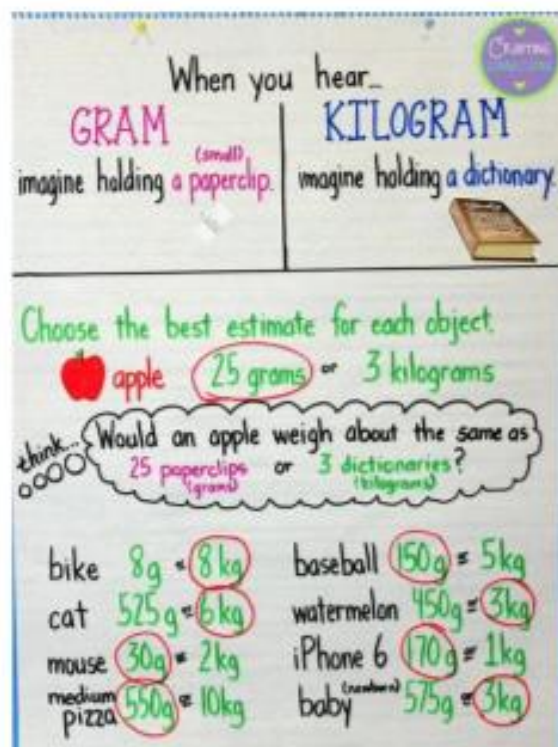 CRAFTING
CONNECTIONS
When you hear...
GRAM
(small)
imagine holding a paperclip.
KILOGRAM
imagine holding a dictionary.
Choose the best estimate for each object.
apple 25 grams or 3 kilograms
think... Would an apple weigh about the same as
25 paperclips or 3 dictionaries?
(grams) (kilograms)
bike 8g or 8kg
cat 525g or 6kg
mouse 30g or 2kg
medium pizza 550g or 10kg
baseball 150g or 5kg
watermelon 450g or 3kg
iPhone 6 170g or 1kg
baby (newborn) 575g or 3kg